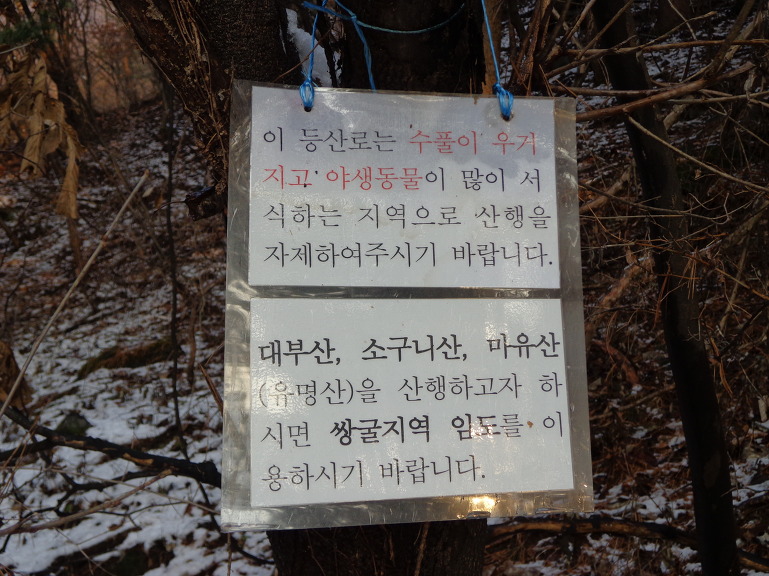 이 등산로는 수풀이 우거
지고 야생동물이 많이 서
식하는 지역으로 산행을
자제하여주시기 바랍니다.
대부산, 소구니산, 마유산
(유명산)을 산행하고자 하
시면 쌍굴지역 임도를 이
용하시기 바랍니다.